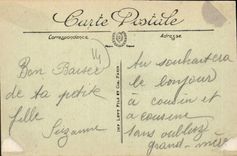 Carte Postale
Correspondance
Adresse
Bon Baiser
de ta petite
fille
Suzanne
Au souhaitera
le bonjour
à cousin et
a cousine
Sans oublier
grand-mère
IMP. LEVY FILS ET Cie, PARIS